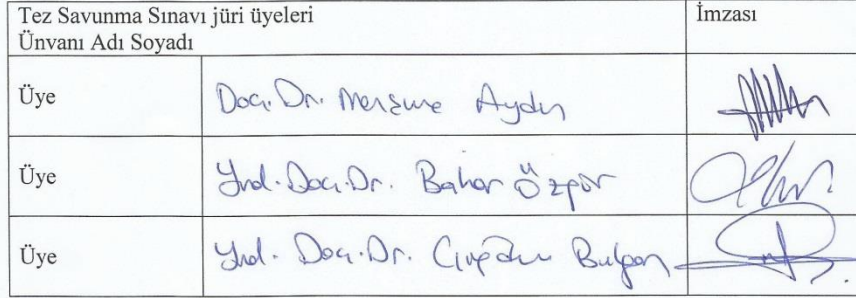 Tez Savunma Sınavı jüri üyeleri
Ünvanı Adı Soyadı
İmzası
Üye Doç. Dr. Aydın
Üye Yrd. Doç. Dr. Bahar Özpor
Üye Yrd. Doç. Dr. Bulgan